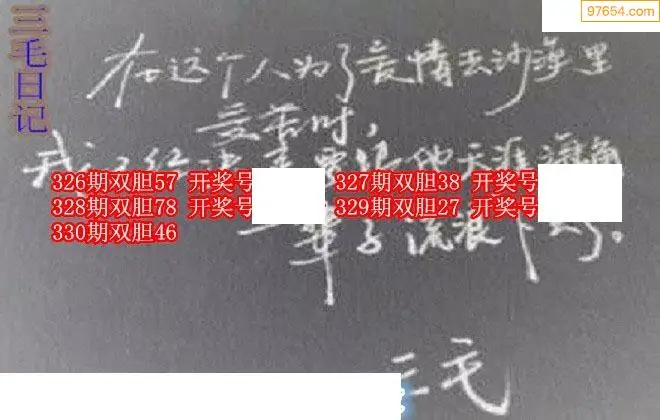 97654.com
三毛日记
在这个人为了爱情去沙漠里
受苦时,
326期双胆57 开奖号
327期双胆38 开奖号
328期双胆78 开奖号
329期双胆27 开奖号
330期双胆46
一辈子流浪下去了。
三毛